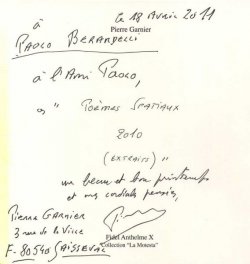 le 18 Avril 2011
Pierre Garnier
à
PAOLO BERARDELLI
à l'Ami PAOLO,
ces "Poèmes Spatiaux
2010
(extraits)"
un beau et bon printemps
et mes cordiales pensées,
Pierre
GARNIER
3 rue de la Ville
F-80540 SAISSEVAL
Fidel Anthelme X
Collection "La Motesta"